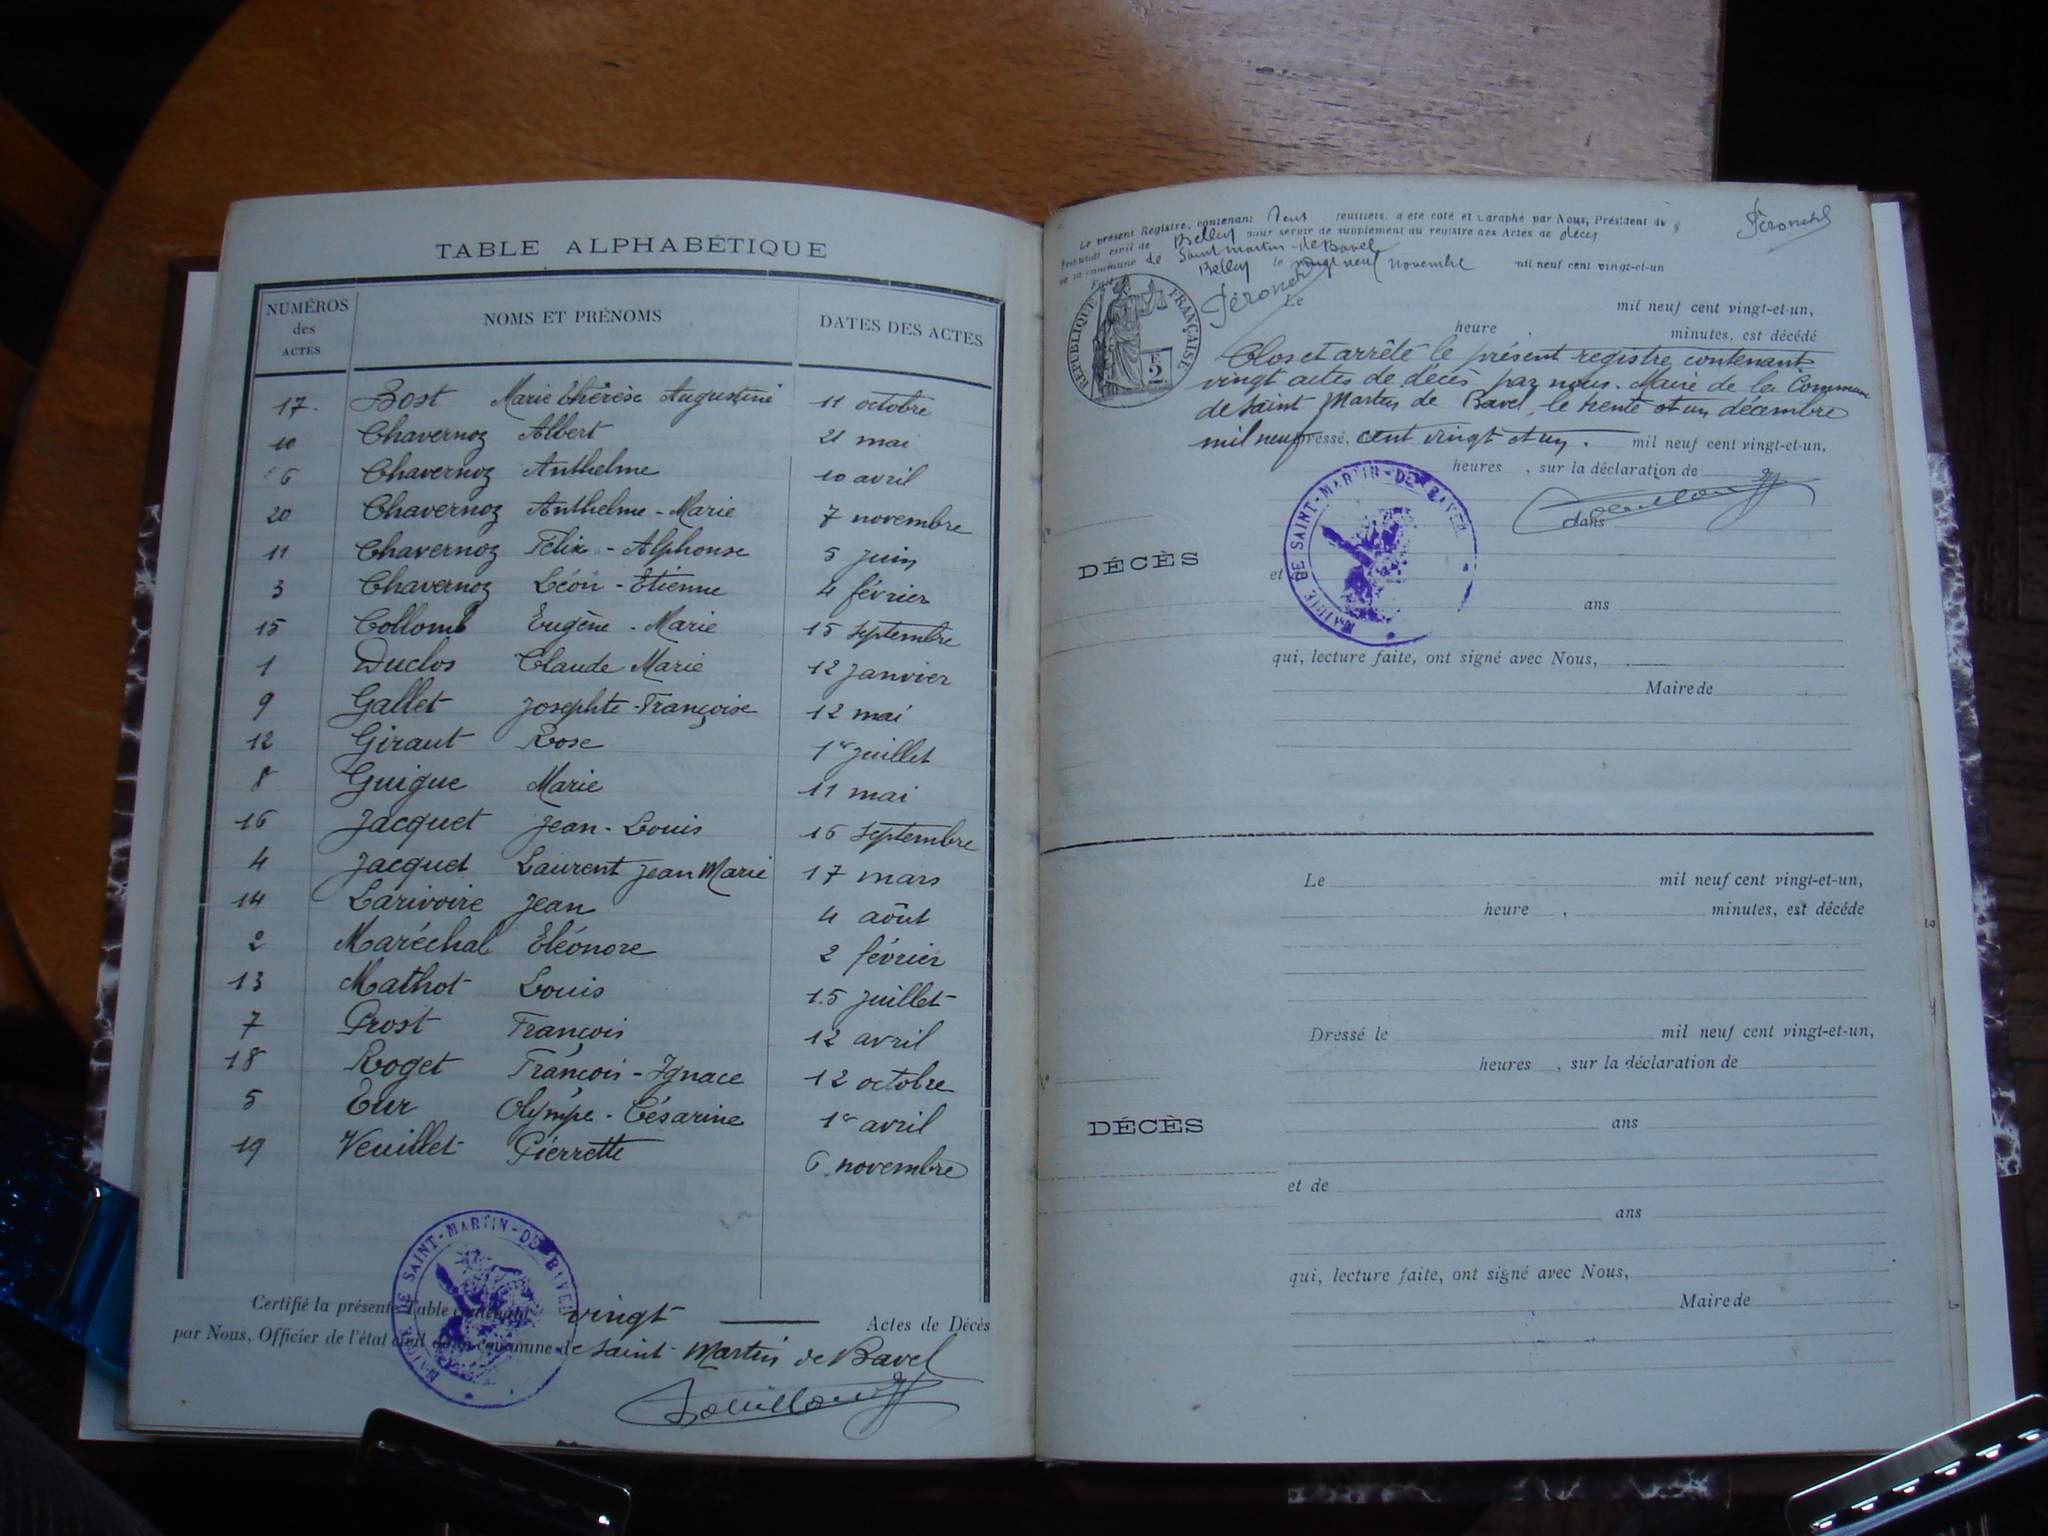 TABLE ALPHABÉTIQUE
NUMÉROS des ACTES NOMS ET PRÉNOMS DATES DES ACTES
17. Bost Marie Thérèse Augustine 11 octobre
10 Chavernoz Albert 21 mai
6 Chavernoz Anthelme 10 avril
20 Chavernoz Anthelme-Marie 7 novembre
11 Chavernoz Félix-Alphonse 5 juin
3 Chavernoz Léon-Etienne 4 février
15 Collomb Eugène-Marie 15 septembre
1 Duclos Claude Marie 12 janvier
9 Gallet Josephte-Françoise 12 mai
12 Giraut Rose 1er juillet
8 Guigue Marie 11 mai
16 Jacquet Jean-Louis 16 septembre
4 Jacquet Laurent Jean Marie 17 mars
14 Larivoire Jean 4 août
2 Maréchal Eléonore 2 février
13 Mathot Louis 15 juillet
7 Prost François 12 avril
18 Roget François-Ignace 12 octobre
5 Tur Olympe-Césarine 1er avril
19 Veuillet Pierrette 6 novembre
MAIRIE DE SAINT-MARTIN-DE-BAVEL
Certifié la présente Table contenant vingt Actes de Décès
par Nous, Officier de l'état civil de la commune de Saint-Martin de Bavel
Le présent Registre, contenant feuillets, a été coté et paraphé par Nous, Président du
tribunal civil de Belley pour servir de supplément au registre des Actes de décès
de la commune de Saint Martin-de Bavel
Belley le vingt neuf novembre mil neuf cent vingt-et-un
RÉPUBLIQUE FRANÇAISE
2 F
Le mil neuf cent vingt-et-un,
heure , minutes, est décédé
Clos et arrêté le présent registre contenant
vingt actes de décès par nous. Maire de la Commune
de Saint Martin de Bavel, le trente et un décembre
mil neuf cent vingt et un. mil neuf cent vingt-et-un,
heures , sur la déclaration de
dans
MAIRIE DE SAINT-MARTIN-DE-BAVEL
DÉCÈS
et
ans
qui, lecture faite, ont signé avec Nous,
Maire de
Le mil neuf cent vingt-et-un,
heure , minutes, est décédé
Dressé le mil neuf cent vingt-et-un,
heures , sur la déclaration de
DÉCÈS
ans
et de
ans
qui, lecture faite, ont signé avec Nous,
Maire de